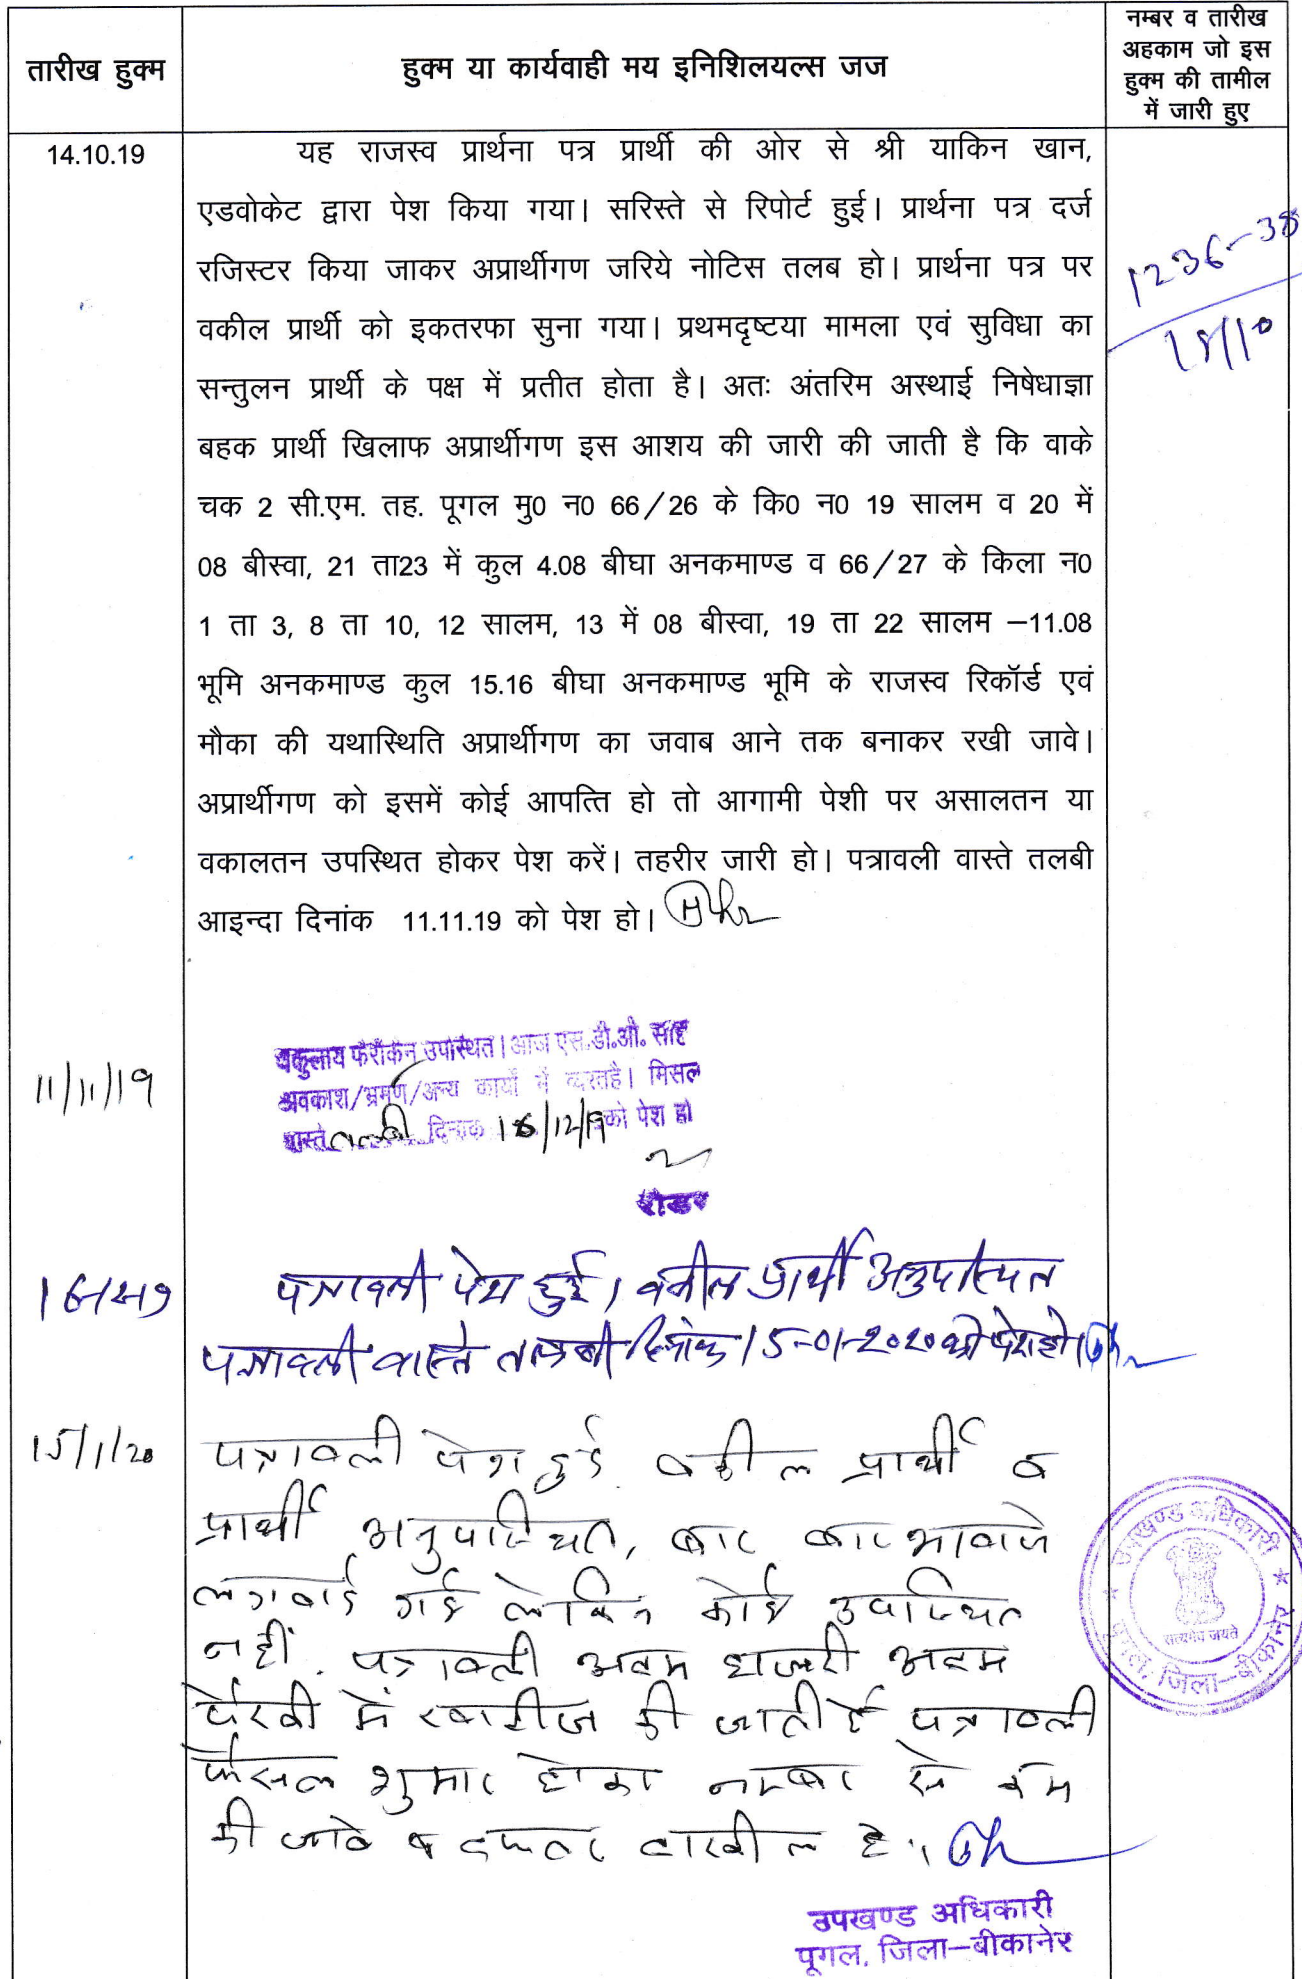 तारीख हुक्म
हुक्म या कार्यवाही मय इनिशिलयल्स जज
नम्बर व तारीख
अहकाम जो इस
हुक्म की तामील
में जारी हुए
14.10.19
यह राजस्व प्रार्थना पत्र प्रार्थी की ओर से श्री याकिन खान,
एडवोकेट द्वारा पेश किया गया। सरिस्ते से रिपोर्ट हुई। प्रार्थना पत्र दर्ज
रजिस्टर किया जाकर अप्रार्थीगण जरिये नोटिस तलब हो। प्रार्थना पत्र पर
वकील प्रार्थी को इकतरफा सुना गया। प्रथमदृष्टया मामला एवं सुविधा का
सन्तुलन प्रार्थी के पक्ष में प्रतीत होता है। अतः अंतरिम अस्थाई निषेधाज्ञा
बहक प्रार्थी खिलाफ अप्रार्थीगण इस आशय की जारी की जाती है कि वाके
चक 2 सी.एम. तह. पूगल मु0 न0 66/26 के कि0 न0 19 सालम व 20 में
08 बीस्वा, 21 ता23 में कुल 4.08 बीघा अनकमाण्ड व 66/27 के किला न0
1 ता 3, 8 ता 10, 12 सालम, 13 में 08 बीस्वा, 19 ता 22 सालम –11.08
भूमि अनकमाण्ड कुल 15.16 बीघा अनकमाण्ड भूमि के राजस्व रिकॉर्ड एवं
मौका की यथास्थिति अप्रार्थीगण का जवाब आने तक बनाकर रखी जावे।
अप्रार्थीगण को इसमें कोई आपत्ति हो तो आगामी पेशी पर असालतन या
वकालतन उपस्थित होकर पेश करें। तहरीर जारी हो। पत्रावली वास्ते तलबी
आइन्दा दिनांक 11.11.19 को पेश हो।
1236-38
18/10
11/11/19
वकुलाय फरीकेन उपस्थित। आज एस.डी.ओ. साह
अवकाश/भ्रमण/अन्य कार्यों में व्यस्त है। मिसल
वास्ते तलबी दिनांक 16/12/19 को पेश हो
रीडर
पत्रावली पेश हुई। वकील प्रार्थी अनुपस्थित
पत्रावली वास्ते तलबी दिनांक 15-01-2020 को पेश हो।
15/1/20
पत्रावली पेश हुई. वकील प्रार्थी व
प्रार्थी अनुपस्थित, बार बार आवाजे
लगवाई गई लेकिन कोई उपस्थित
नहीं. पत्रावली अदम हाजरी अदम
पैरवी में खारीज की जाती है पत्रावली
फैसल शुमार होकर नम्बर से कम
की जावे व दफ्तर दाखील हो।
उपखण्ड अधिकारी
पूगल, जिला–बीकानेर
सत्यमेव जयते
उपखण्ड अधिकारी
पूगल, जिला–बीकानेर